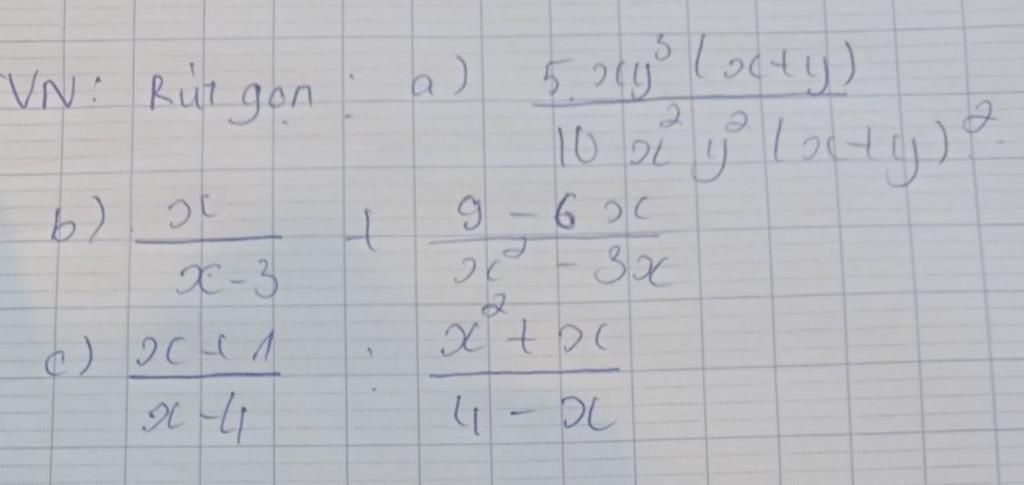 VN: Rút gọn : a) \frac{5.xy^3(x+y)}{10x^2y^2(x+y)^2}
b) \frac{x}{x-3} + \frac{9-6x}{x^2-3x}
c) \frac{x+1}{x-4} : \frac{x^2+x}{4-x}